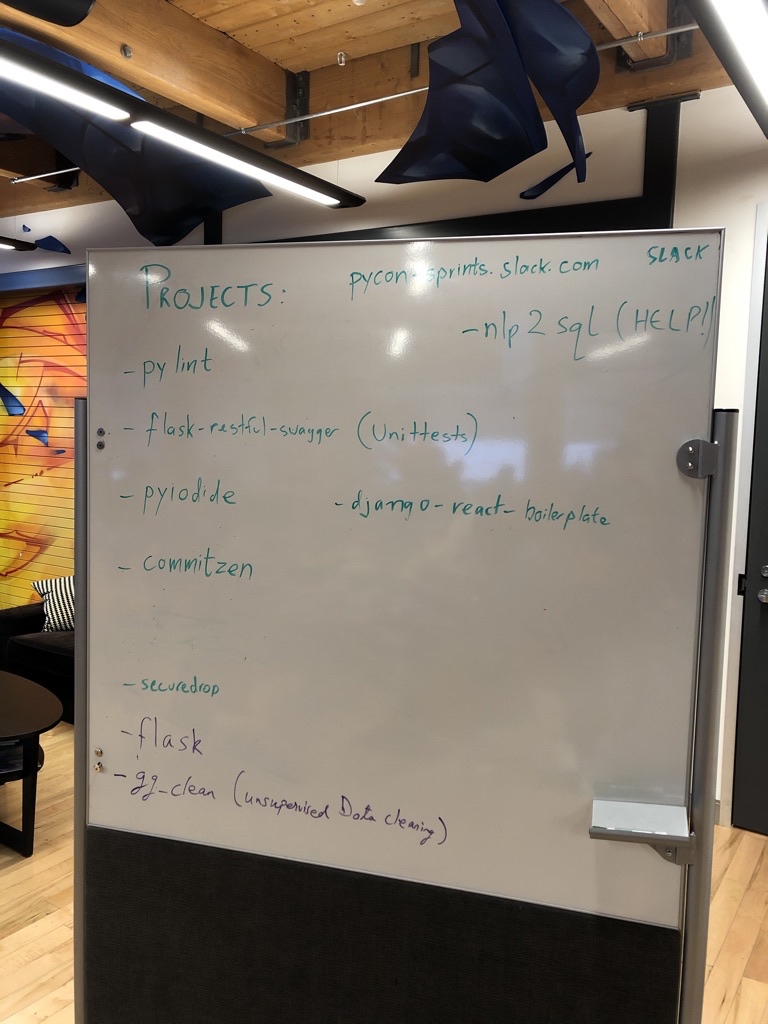 PROJECTS: pycon-sprints.slack.com SLACK
- nlp2sql (HELP!)
- pylint
- flask-restful-swagger (Unittests)
- pyiodide - django-react-boilerplate
- commitzen
- securedrop
- flask
- gg_clean (unsupervised Data cleaning)